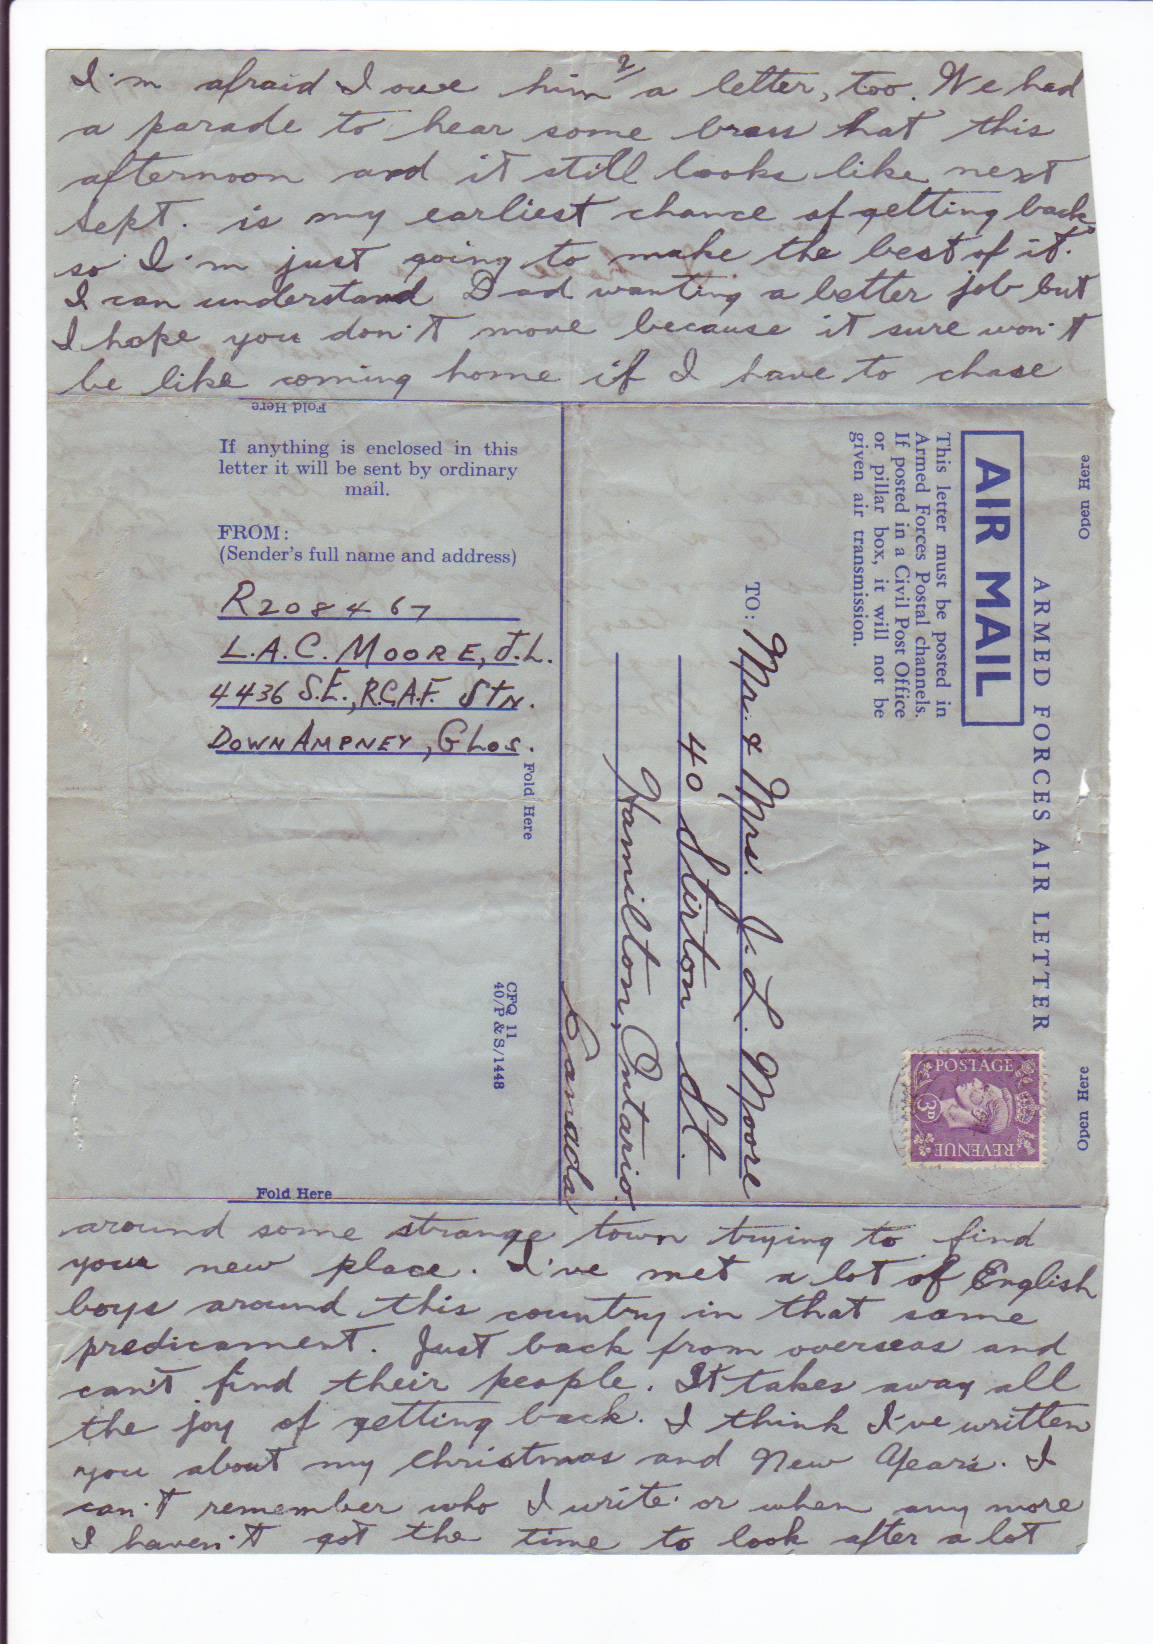 2/
I'm afraid I owe him a letter, too. We had
a parade to hear some brass hat this
afternoon and it still looks like next
Sept. is my earliest chance of getting back
so I'm just going to make the best of it.
I can understand Dad wanting a better job but
I hope you don't move because it sure won't
be like coming home if I have to chase
Fold Here
If anything is enclosed in this
letter it will be sent by ordinary
mail.
FROM:
(Sender's full name and address)
R208467
L.A.C. MOORE, J.L.
4436 S.E., R.C.A.F. STN.
DOWN AMPNEY, GLOS.
Fold Here
CFQ 11
40/P & S/1448
Open Here
ARMED FORCES AIR LETTER
AIR MAIL
This letter must be posted in
Armed Forces Postal channels.
If posted in a Civil Post Office
or pillar box, it will not be
given air transmission.
TO: Mr. & Mrs. J. L. Moore
40 Stirton St.
Hamilton, Ontario.
Canada
POSTAGE
3D
REVENUE
Open Here
Fold Here
around some strange town trying to find
your new place. I've met a lot of English
boys around this country in that same
predicament. Just back from overseas and
can't find their people. It takes away all
the joy of getting back. I think I've written
you about my Christmas and New Year's. I
can't remember who I write or when any more
I haven't got the time to look after a lot